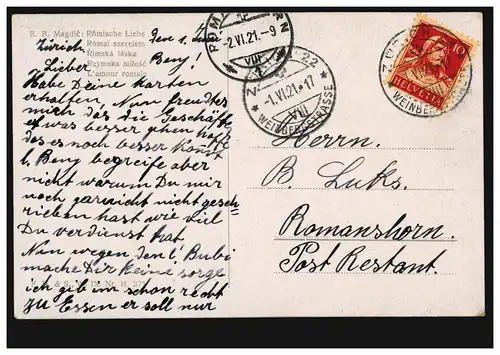 E. B. Magdič: Römische Liebe
Római szerelem
Římská láska
Rzymska miłość
L'amour romain
Zürich den 1. Juni
Lieber Beny!
Habe Deine Karten
erhalten, Nun freudtes
mich das die Geschäfte
etwas besser gehn hoffe
das es noch besser komt
l. Beny begreife aber
nicht warum Du mir
noch garnicht nicht gesch=
rieben hast wie viel
Du verdienst hat
Nun wegen den l. Bubi
mache Dir keine sorge
ich gib im schon recht
zu Essen er soll nur
ROMANSHORN
-2.VI.21.-9
VIII
22
-1.VI.21.17
VIII
WEINBERGSTRASSE
10
HELVETIA
WEINBERG
Herrn.
B. Luks.
Romanshorn.
Post Restant.